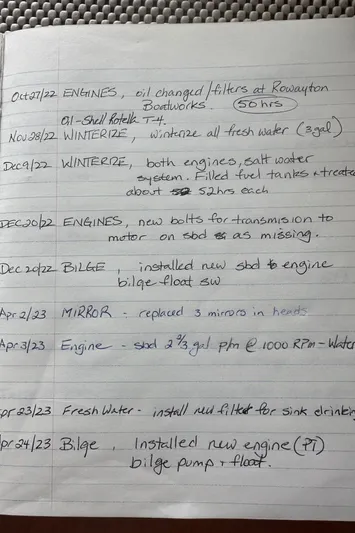 Oct 27/22 ENGINES, oil changed/filters at Rowayton
Boatworks. 50 hrs
Oil - Shell Rotella T-4.
Nov 28/22 WINTERIZE, winterize all fresh water (3 gal)
Dec 9/22 WINTERIZE, both engines, salt water
system. Filled fuel tanks + treated
about 52 hrs each
DEC 20/22 ENGINES, new bolts for transmision to
motor on sbd as missing.
Dec 20/22 BILGE, installed new sbd engine
bilge float sw
Apr 2/23 MIRROR - replaced 3 mirrors in heads
Apr 3/23 Engine - sbd 2 2/3 gal p/m @ 1000 RPm - Water
pr 23/23 Fresh Water - install new filter for sink drinkin
pr 24/23 Bilge, Installed new engine (PT)
bilge pump + float.